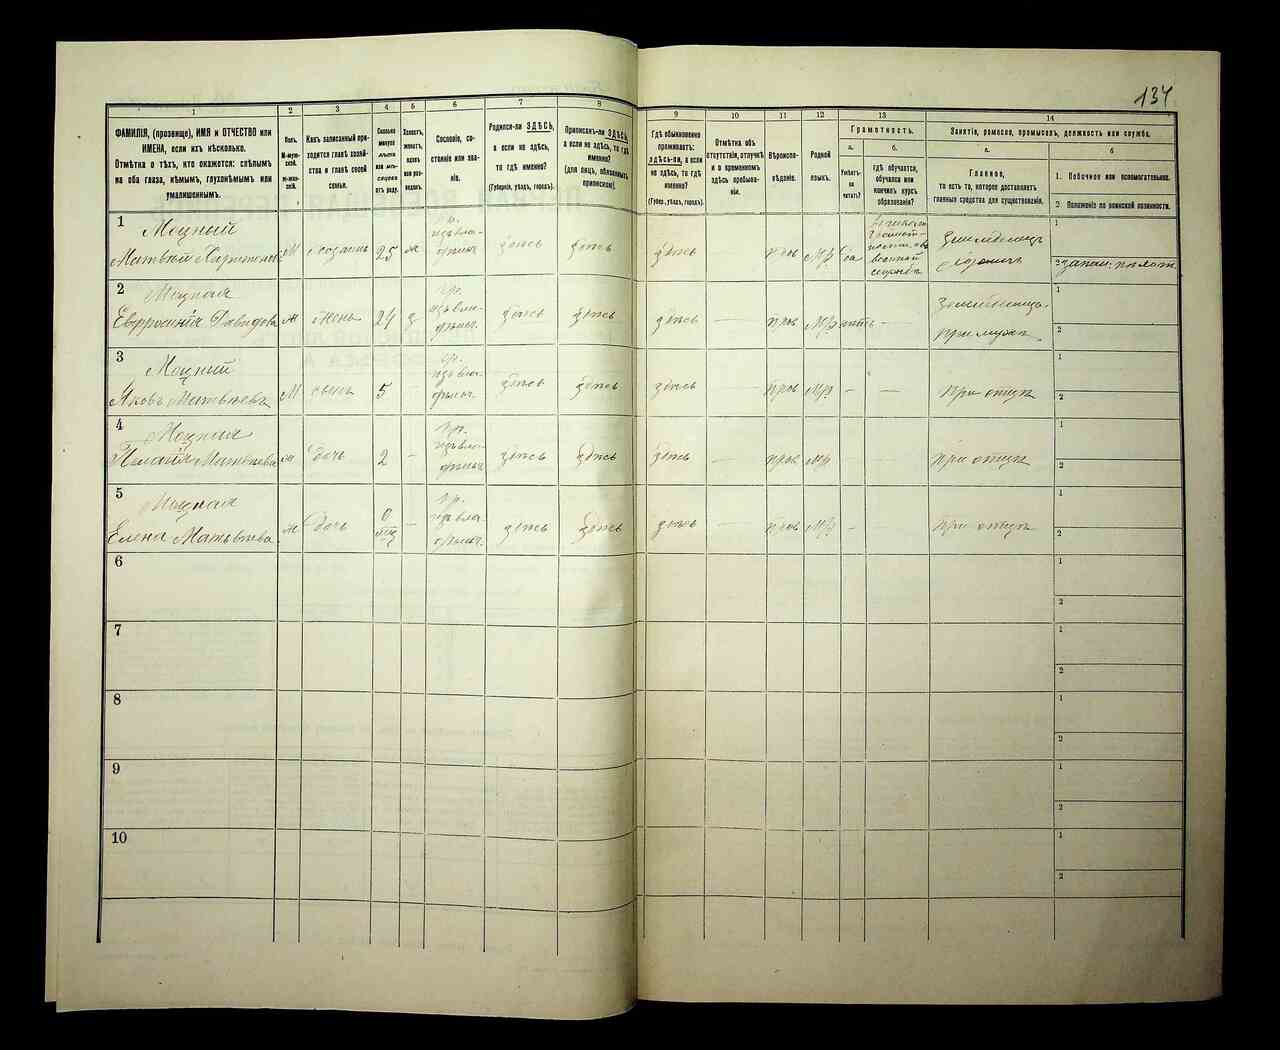 134
1
2
3
4
5
6
7
8
9
10
11
12
13
14
ФАМИЛІЯ, (прозвище), ИМЯ и ОТЧЕСТВО или
ИМЕНА, если ихъ нѣсколько.
Отмѣтка о тѣхъ, кто окажется: слѣпымъ
на оба глаза, нѣмымъ, глухонѣмымъ или
умалишеннымъ.
Полъ.
М-муж-
ской.
ж-жен-
скій.
Какъ записанный при-
ходится главѣ хозяй-
ства и главѣ своей
семьи.
Сколько
минуло
лѣтъ
или мѣ-
сяцевъ
отъ роду.
Холостъ,
женатъ,
вдовъ
или раз-
веденъ.
Сословіе, со-
стояніе или зва-
ніе.
Родился-ли ЗДѢСЬ,
а если не здѣсь,
то гдѣ именно?
(Губернія, уѣздъ, городъ).
Приписанъ-ли ЗДѢСЬ,
а если не здѣсь, то гдѣ
именно?
(для лицъ, обязанныхъ
припискою).
Гдѣ обыкновенно
проживаетъ:
здѣсь-ли, а если
не здѣсь, то гдѣ
именно?
(Губер., уѣздъ, городъ).
Отмѣтка объ
отсутствіи, отлучкѣ
и о временномъ
здѣсь пребыва-
ніи.
Вѣроиспо-
вѣданіе.
Родной
языкъ.
Грамотность.
а.
б.
Умѣетъ-
ли
читать?
гдѣ обучается,
обучался или
кончилъ курсъ
образованія?
Занятіе, ремесло, промыселъ, должность или служба.
а.
б
Главное,
то есть то, которое доставляетъ
главныя средства для существованія.
1. Побочное или вспомогательное.
2. Положеніе по воинской повинности.
1
Моцный
Матвѣй Харитоновъ
М
хозяинъ
25
ж
кр.
изъ вла-
дѣльч.
здѣсь
здѣсь
здѣсь
прав
МР
да
военной
службѣ
Земледѣлецъ
хозяинъ
1
2
2
Моцная
Евфросинія Давидова
ж
жена
24
з
кр.
изъ вла-
дѣльч.
здѣсь
здѣсь
здѣсь
—
прав
МР
нѣтъ
—
при мужѣ
1
2
3
Моцный
Яковъ Матвѣевъ
М
сынъ
5
—
кр.
изъ вла-
дѣльч.
здѣсь
здѣсь
здѣсь
прав
МР
—
—
при отцѣ
1
2
4
Моцная
Пелагія Матвѣева
ж
дочь
2
—
кр.
изъ вла-
дѣльч
здѣсь
здѣсь
здѣсь
—
прав
МР
при отцѣ
1
2
5
Моцная
Елена Матвѣева
ж
дочь
0
—
кр.
изъ вла
дѣльч.
здѣсь
здѣсь
здѣсь
—
прав
МР
—
—
при отцѣ
1
2
6
1
2
7
1
2
8
1
2
9
1
2
10
1
2